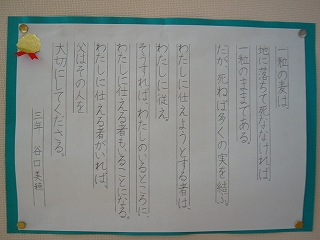 一粒の麦は、
地に落ちて死ななければ、
一粒のままである。
だが、死ねば多くの実を結ぶ。
わたしに仕えようとする者は、
わたしに従え。
そうすれば、わたしのいるところに、
わたしに仕える者もいることになる。
わたしに仕える者がいれば、
父はその人を
大切にしてくださる。
三年 谷口美穂